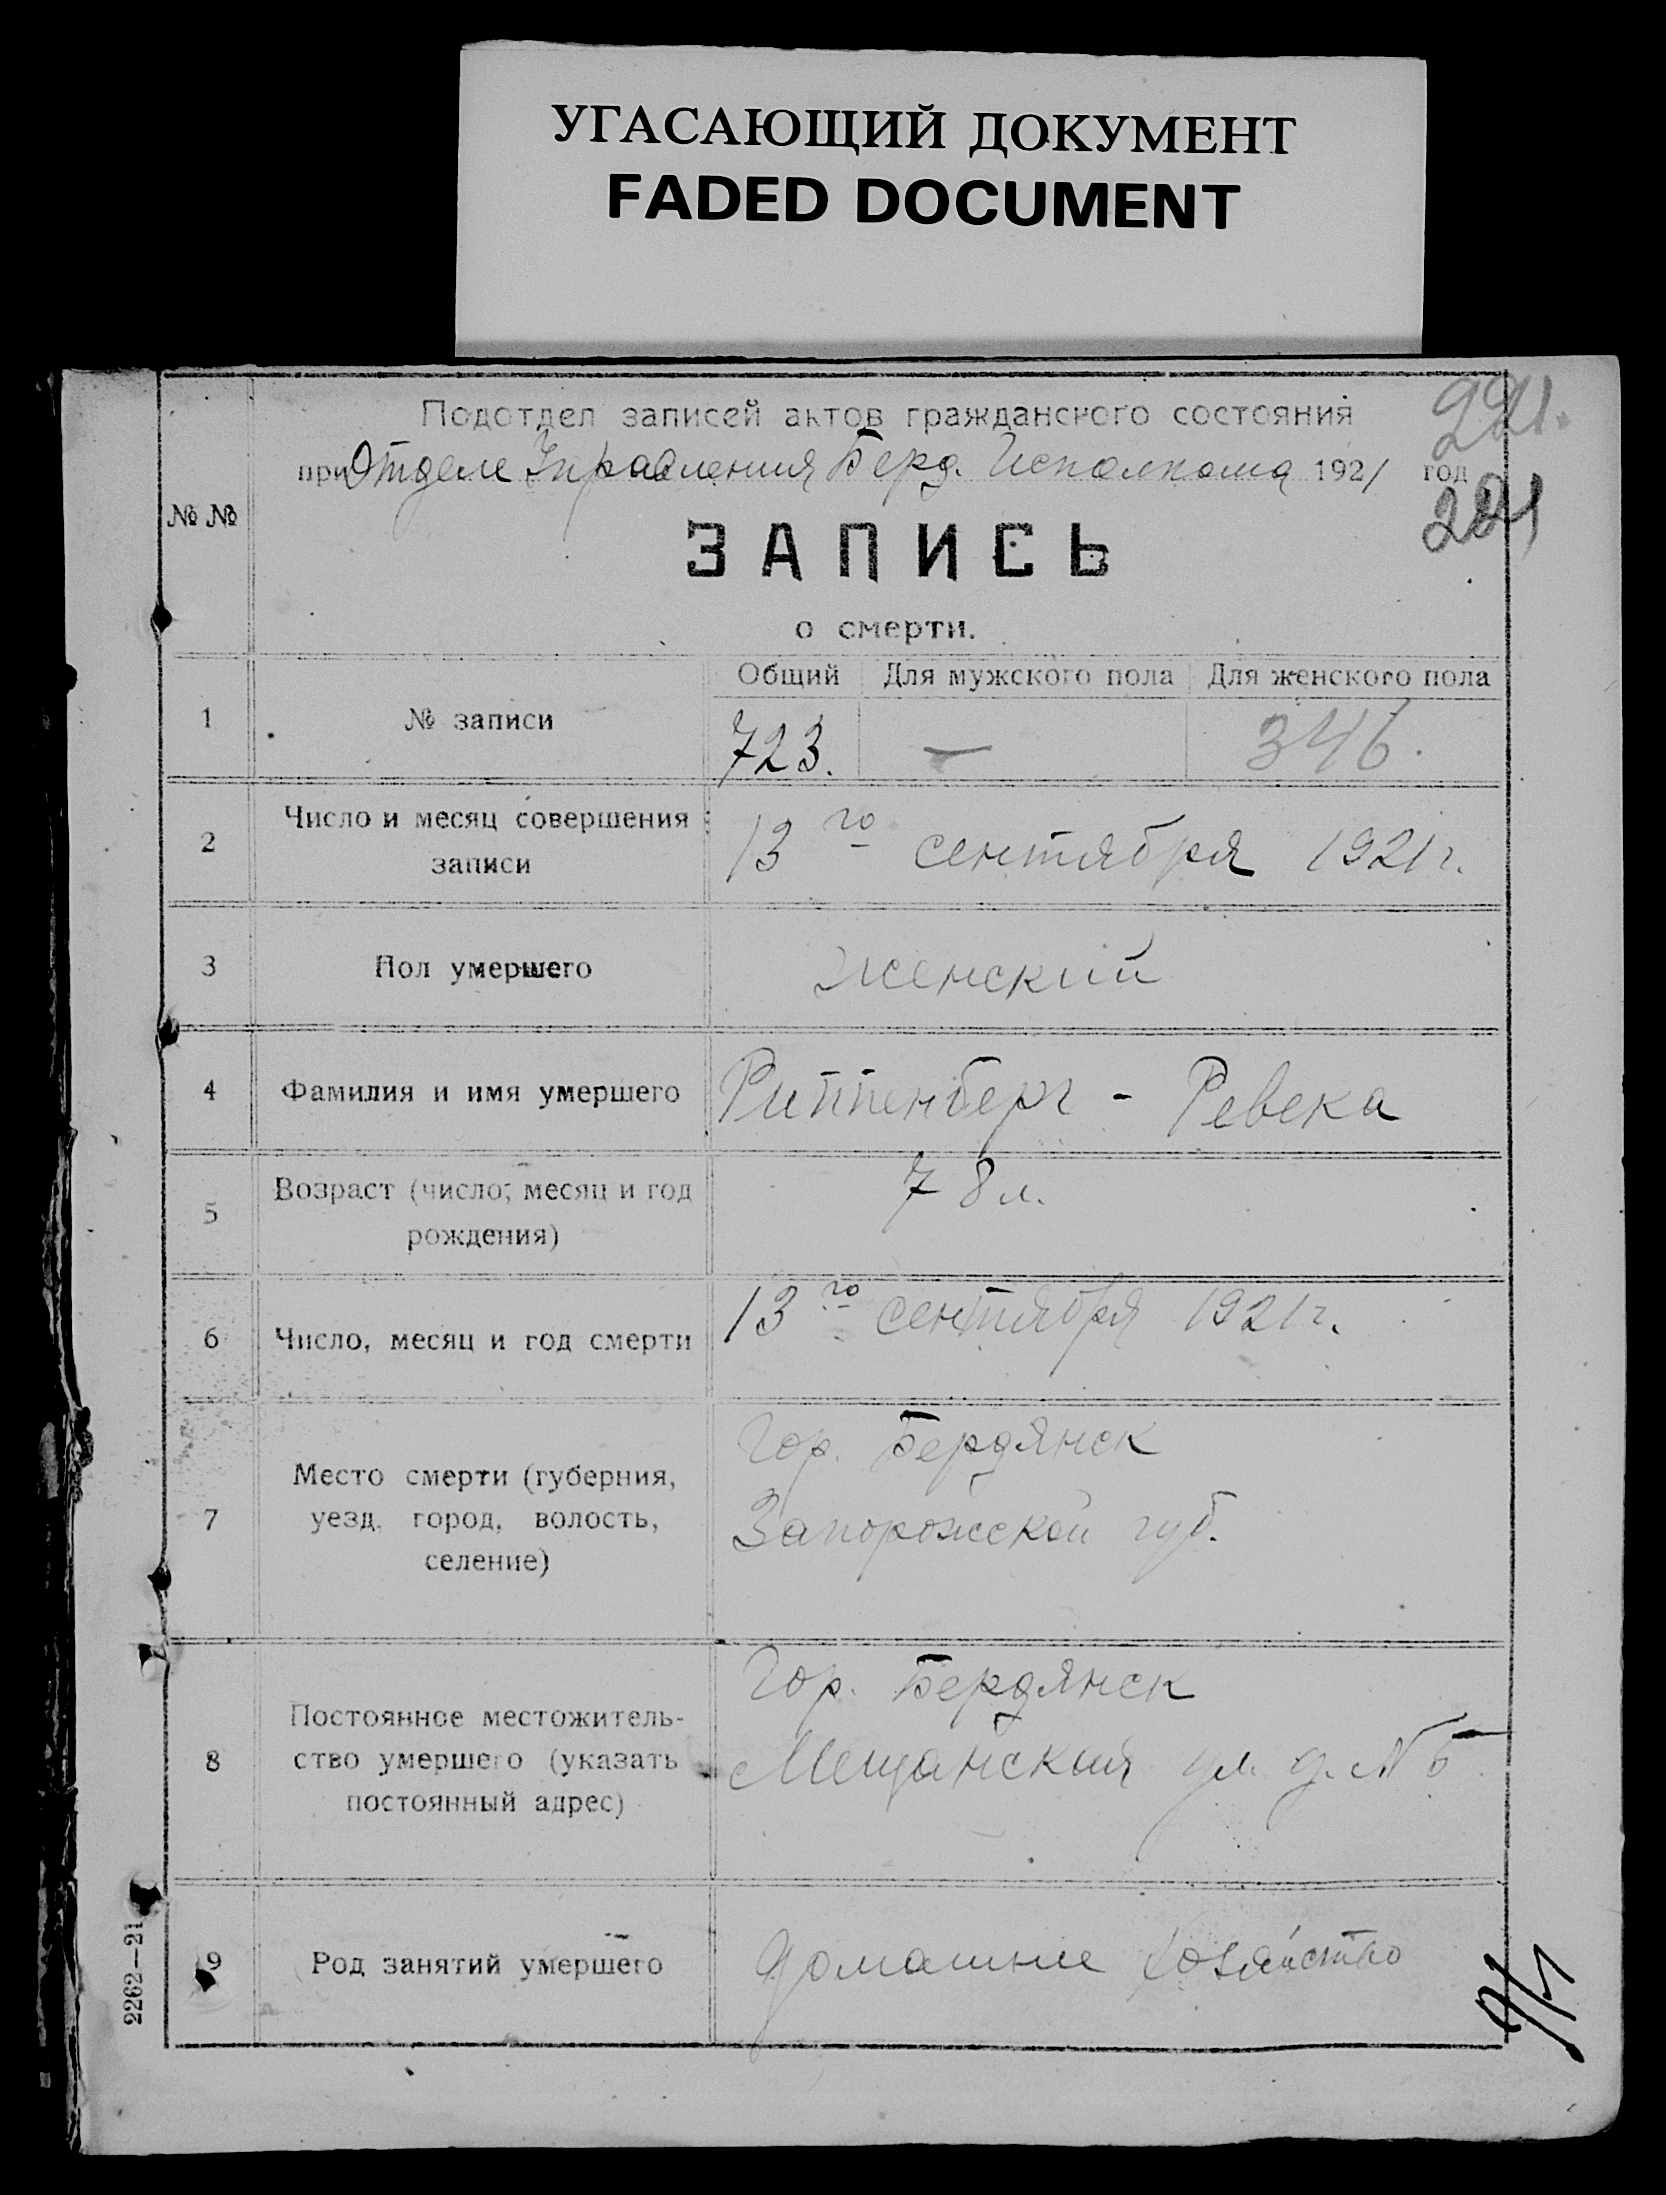 УГАСАЮЩИЙ ДОКУМЕНТ
FADED DOCUMENT
Подотдел записей актов гражданского состояния
221.
при Отделе Управления Берд. Исполкома 1921 год
221
№ №
ЗАПИСЬ
о смерти.
Общий Для мужского пола Для женского пола
1 № записи 723. — 346.
2 Число и месяц совершения
записи
13го сентября 1921 г.
3 Пол умершего женский
4 Фамилия и имя умершего Риттенберг - Ревека
5 Возраст (число, месяц и год
рождения)
78 л.
6 Число, месяц и год смерти 13го сентября 1921 г.
7 Место смерти (губерния,
уезд, город, волость,
селение)
Гор. Бердянск
Запорожской губ.
8 Постоянное местожитель-
ство умершего (указать
постоянный адрес)
Гор. Бердянск
Мещанская ул. д. №
9 Род занятий умершего домашнее хозяйство
2262—21